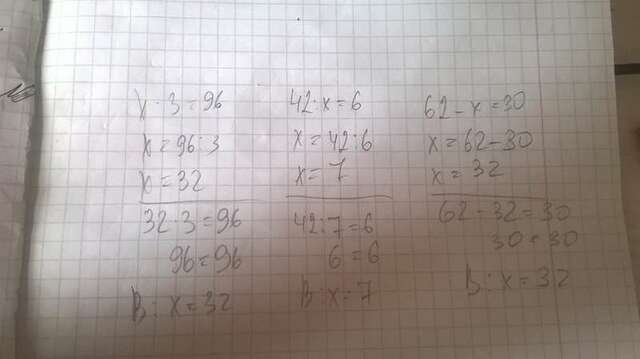 x · 3 = 96
x = 96 : 3
x = 32
32 · 3 = 96
96 = 96
В: x = 32
42 : x = 6
x = 42 : 6
x = 7
42 : 7 = 6
6 = 6
В: x = 7
62 - x = 30
x = 62 - 30
x = 32
62 - 32 = 30
30 = 30
В: x = 32